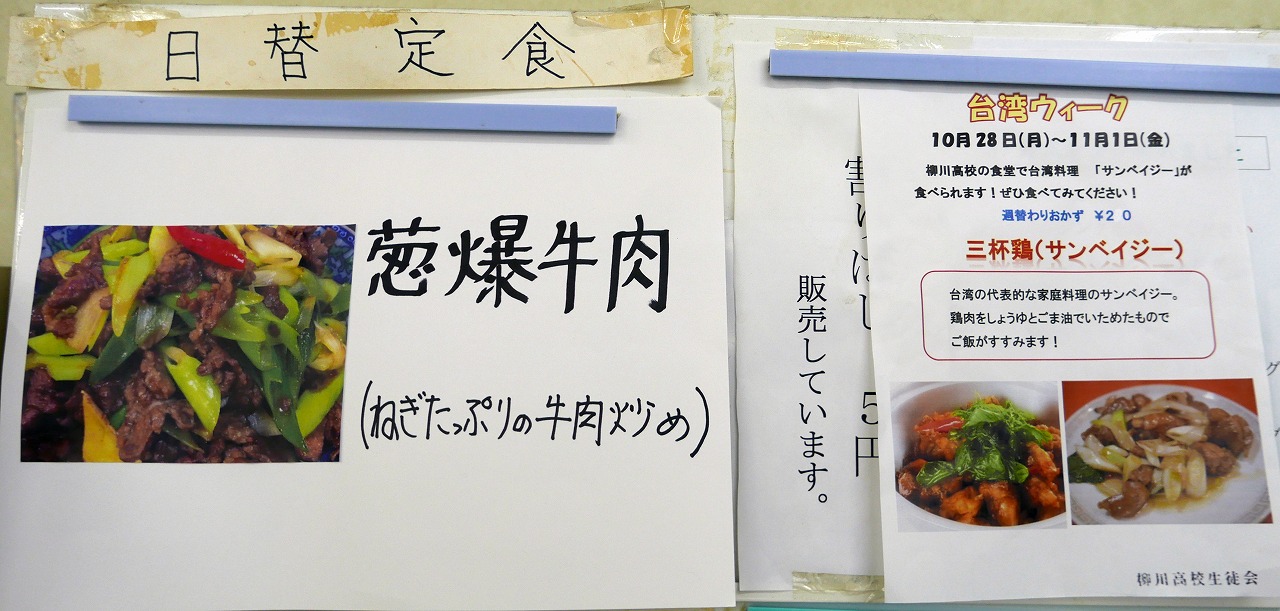 日替定食
葱爆牛肉
(ねぎたっぷりの牛肉炒め)
販売しています。
5円
台湾ウィーク
10月28日(月)～11月1日(金)
柳川高校の食堂で台湾料理 「サンベイジー」が
食べられます!ぜひ食べてみてください!
週替わりおかず ￥20
三杯鶏(サンベイジー)
台湾の代表的な家庭料理のサンベイジー。
鶏肉をしょうゆとごま油でいためたもので
ご飯がすすみます!
柳川高校生徒会